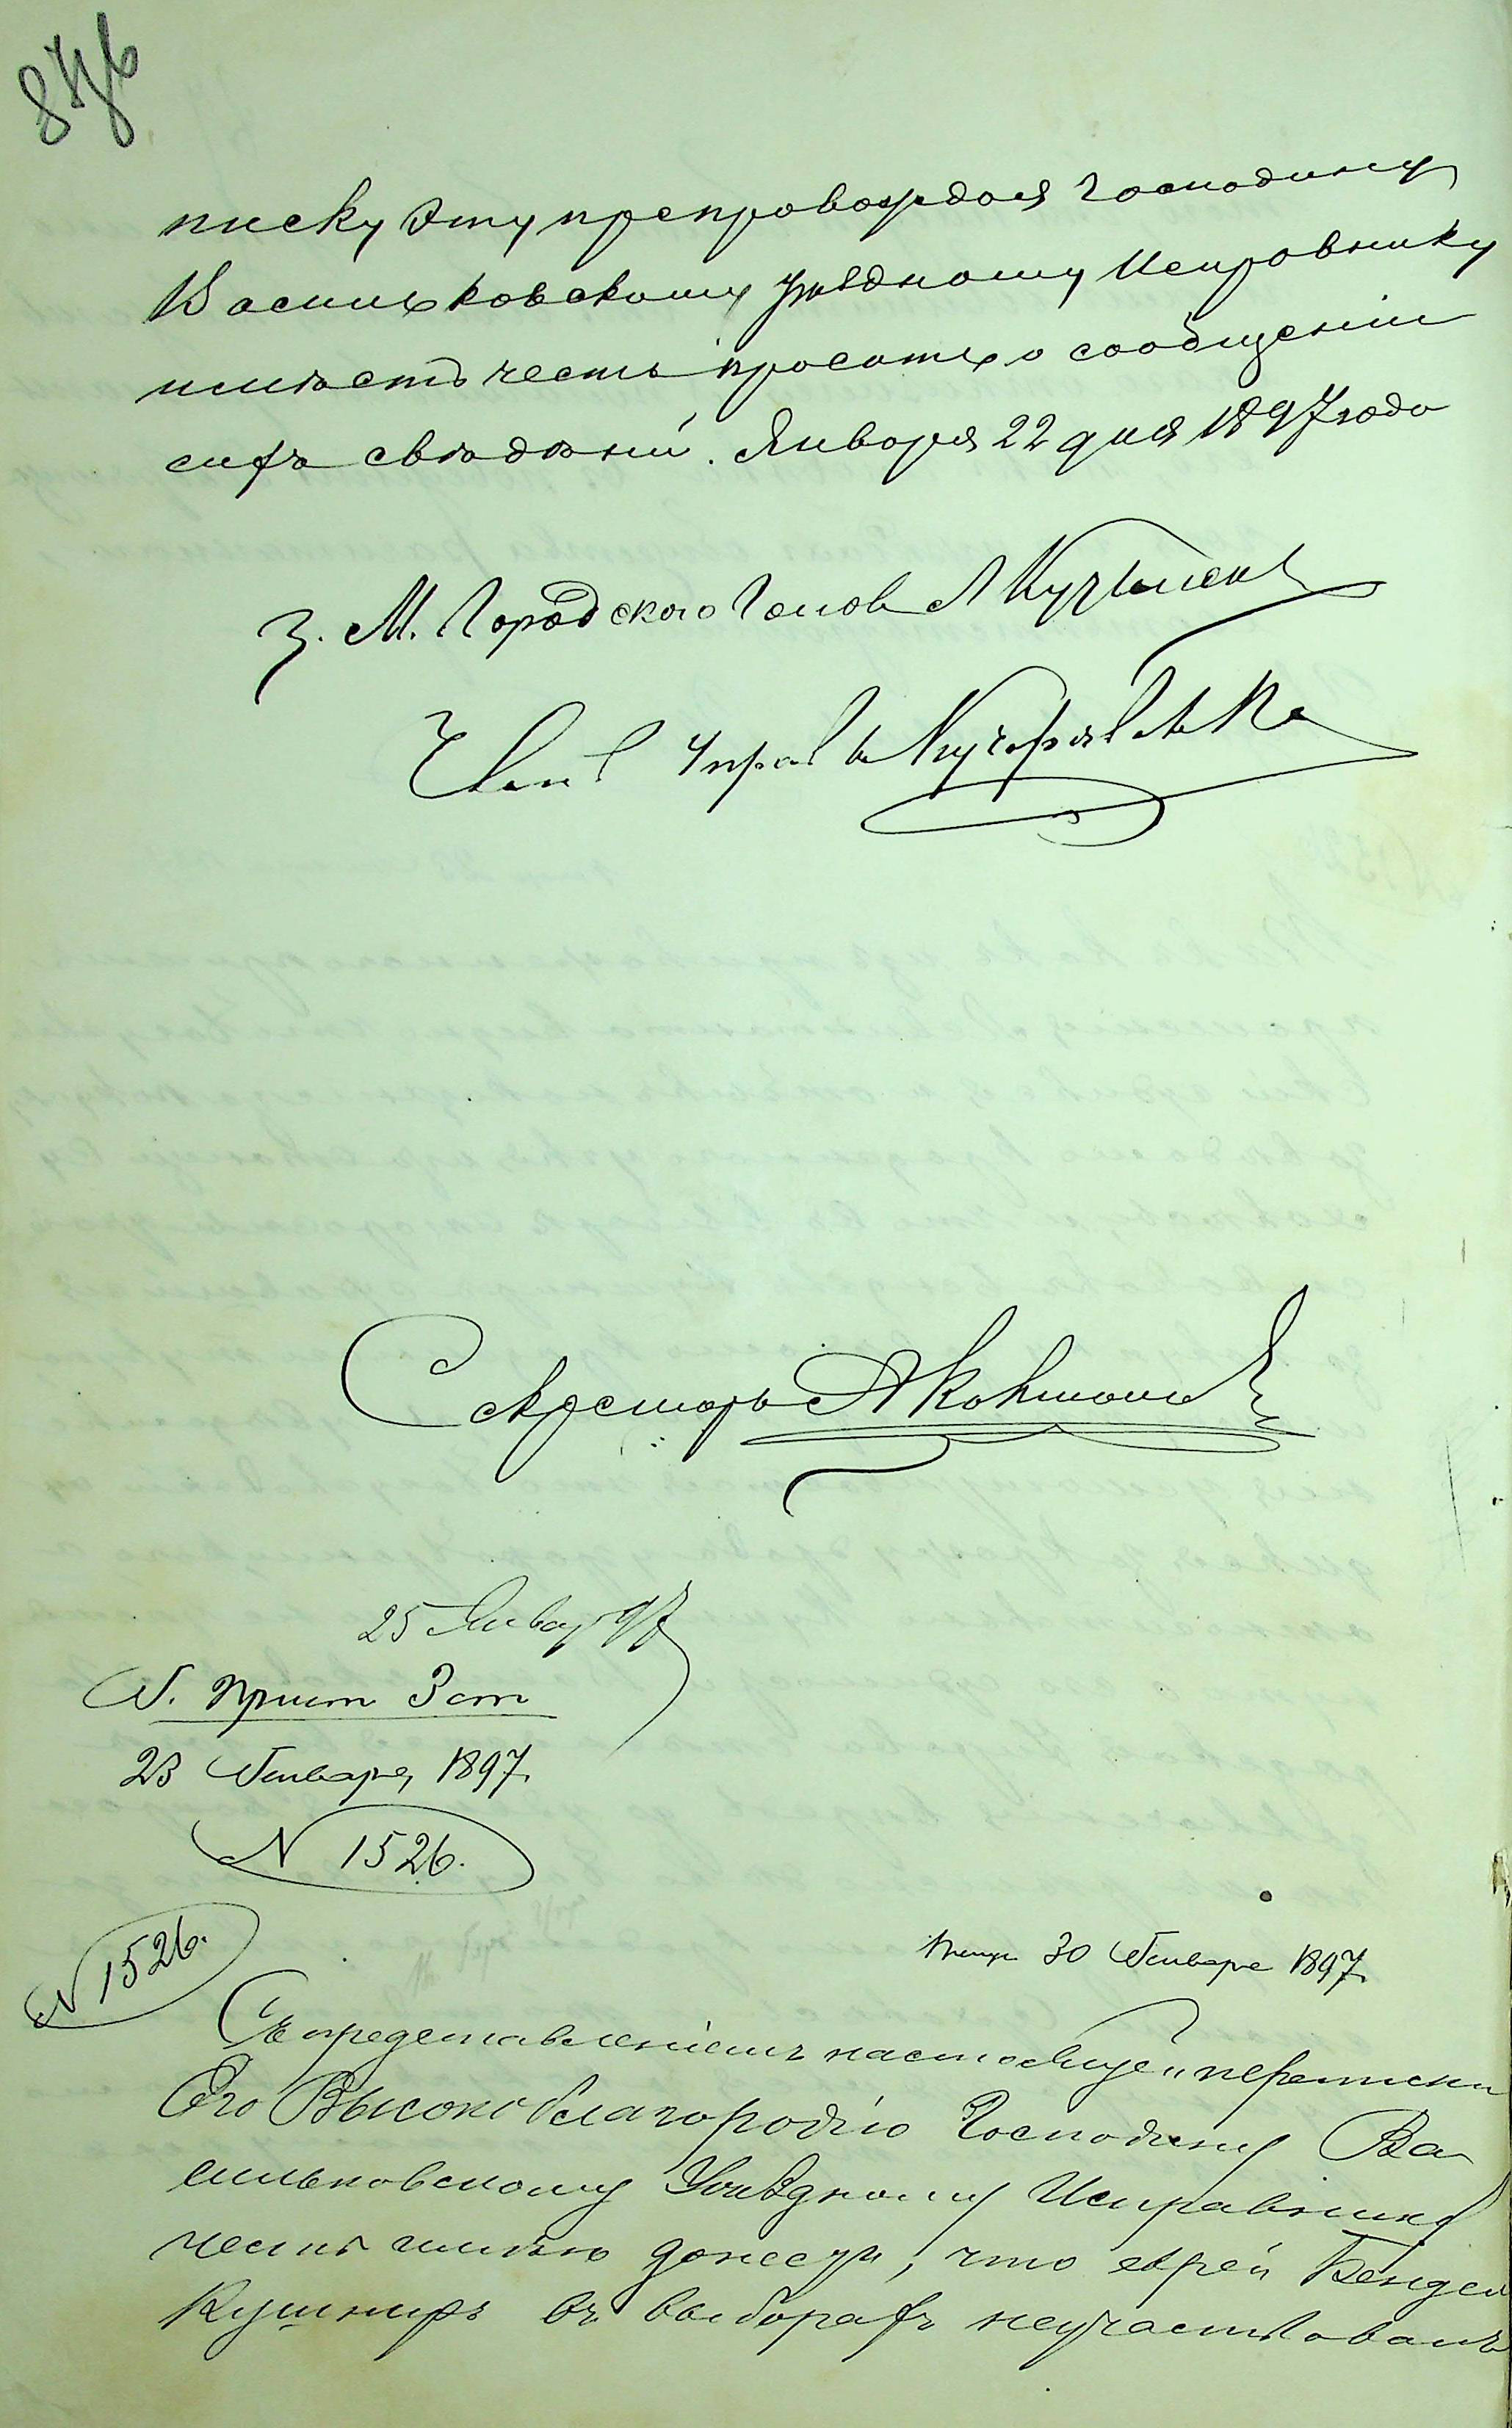 писку эту препровождая Господину
Васильковскому Уѣздному Исправнику
имѣетъ честь просить о сообщеніи
сихъ свѣдѣній. Января 22 дня 1897 года
З. М. Городского Голов
Член Управы
Секретарь
25 Январ 97
П. Прист 3 ст
23 Января, 1897.
N 1526.
N 1526.
30 Января 1897.
Съ представленіемъ настоящей переписки
Его Высокоблагородію Господину Ва
сильковскому Уѣздному Исправнику
честь имѣю донести, что еврей Бендет
Кушниръ въ выборахъ неучаствовалъ